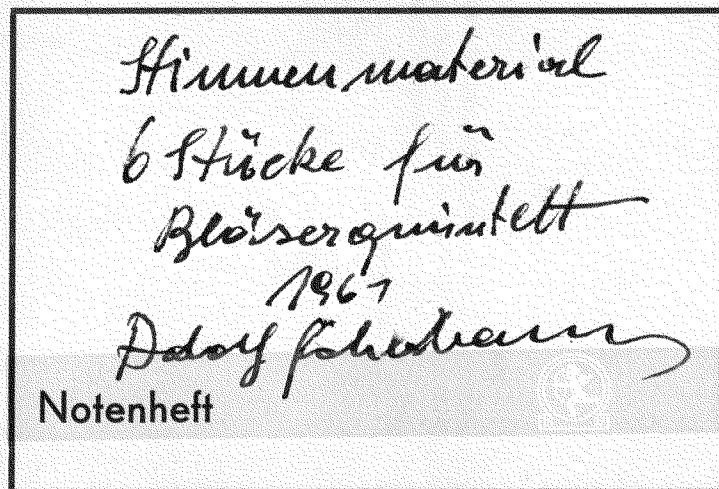 Stimmenmaterial
6 Stücke für
Bläserquintett
1961
Adolf
Notenheft